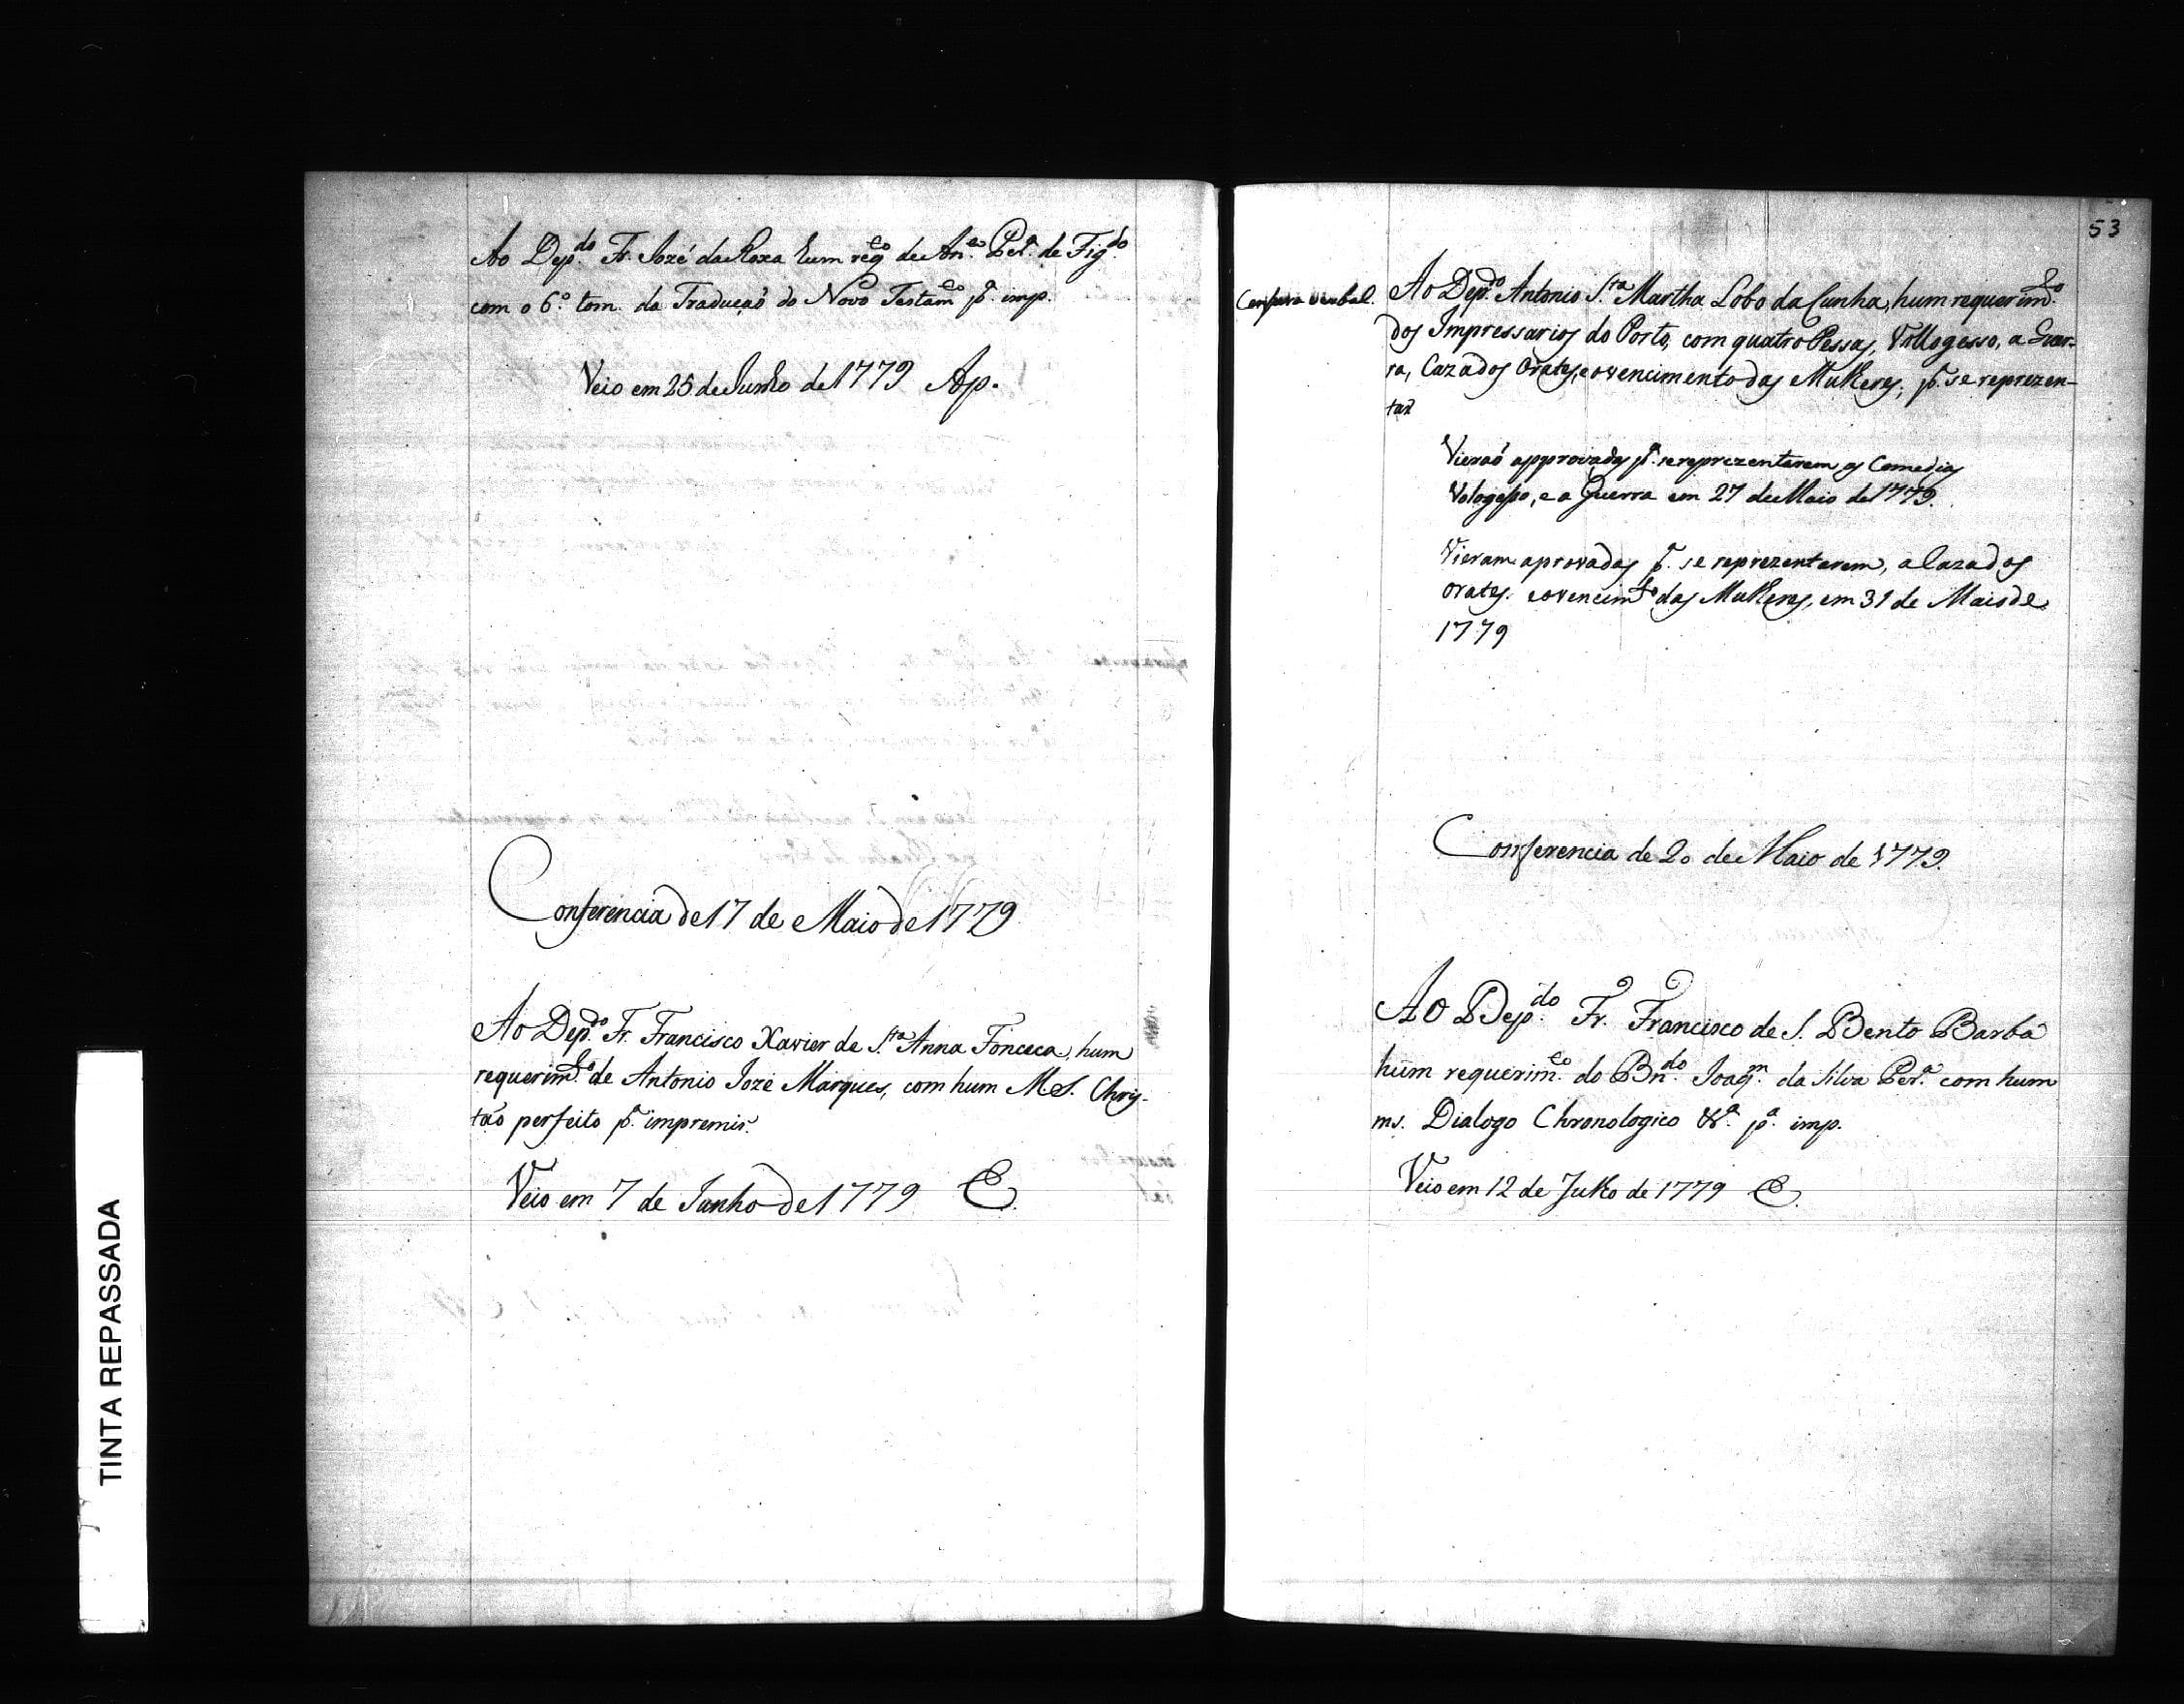 Ao Dep.do Fr. Jozé da Roxa hum req.to de An.to Per.a de Fig.do
com o 6.º tom. da Traduçaõ do Novo Testam.to p.a imp.
Veio em 25 de Junho de 1779 Ap.
Conferencia de 17 de Maio de 1779
Ao Dep.do Fr. Francisco Xavier de S.ta Anna Fonceca, hum
requerim.to de Antonio Jozé Marques, com hum M.S. Chris-
taõ perfeito p.a impremir.
Veio em 7 de Junho de 1779 E.
53
Censura verbal.
Ao Dep.do Antonio S.ta Martha Lobo da Cunha, hum requerim.to
dos Impressarios do Porto, com quatro Pessas, Vollogesso, a Guer-
ra, Caza dos Orates, e o vencimento das Mulheres; p.a se reprezen-
tar
Vieraõ approvadas p.a se reprezentarem as Comedias
Vologesso, e a Guerra em 27 de Maio de 1779.
Vieram aprovadas p.a se reprezentarem, a Caza dos
Orates. e o vencim.to das Mulheres, em 31 de Maio de
1779
Conferencia de 20 de Maio de 1779.
Ao Dep.do Fr. Francisco de S. Bento Barba
hum requerim.to do Bn.do Joaq.m da Silva Per.a com hum
ms. Dialogo Chronologico &.a p.a imp.
Veio em 12 de Julho de 1779 E.
TINTA REPASSADA